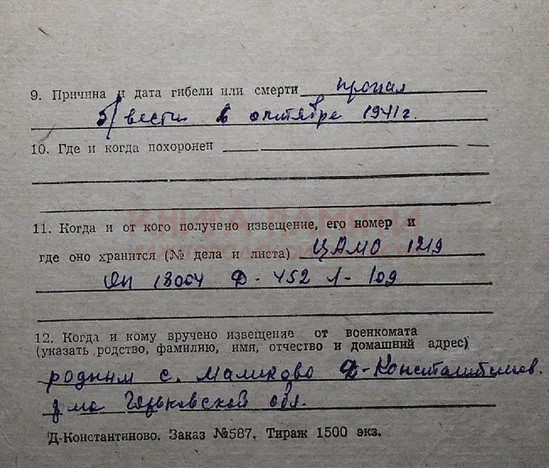 9. Причина и дата гибели или смерти пропал
б/вести в октябре 1941г.
10. Где и когда похоронен
КНИГА ПАМЯТИ
11. Когда и от кого получено извещение, его номер и
где оно хранится (№ дела и листа) ЦАМО 1219
оп 18004 Д-452 Л-109
12. Когда и кому вручено извещение от военкомата
(указать родство, фамилию, имя, отчество и домашний адрес)
родным с. Маликово Д-Константинов.
Горьковской обл.
Д-Константиново. Заказ №587. Тираж 1500 экз.